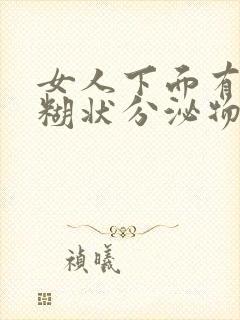 女人下面有
糊状分泌物
祯曦